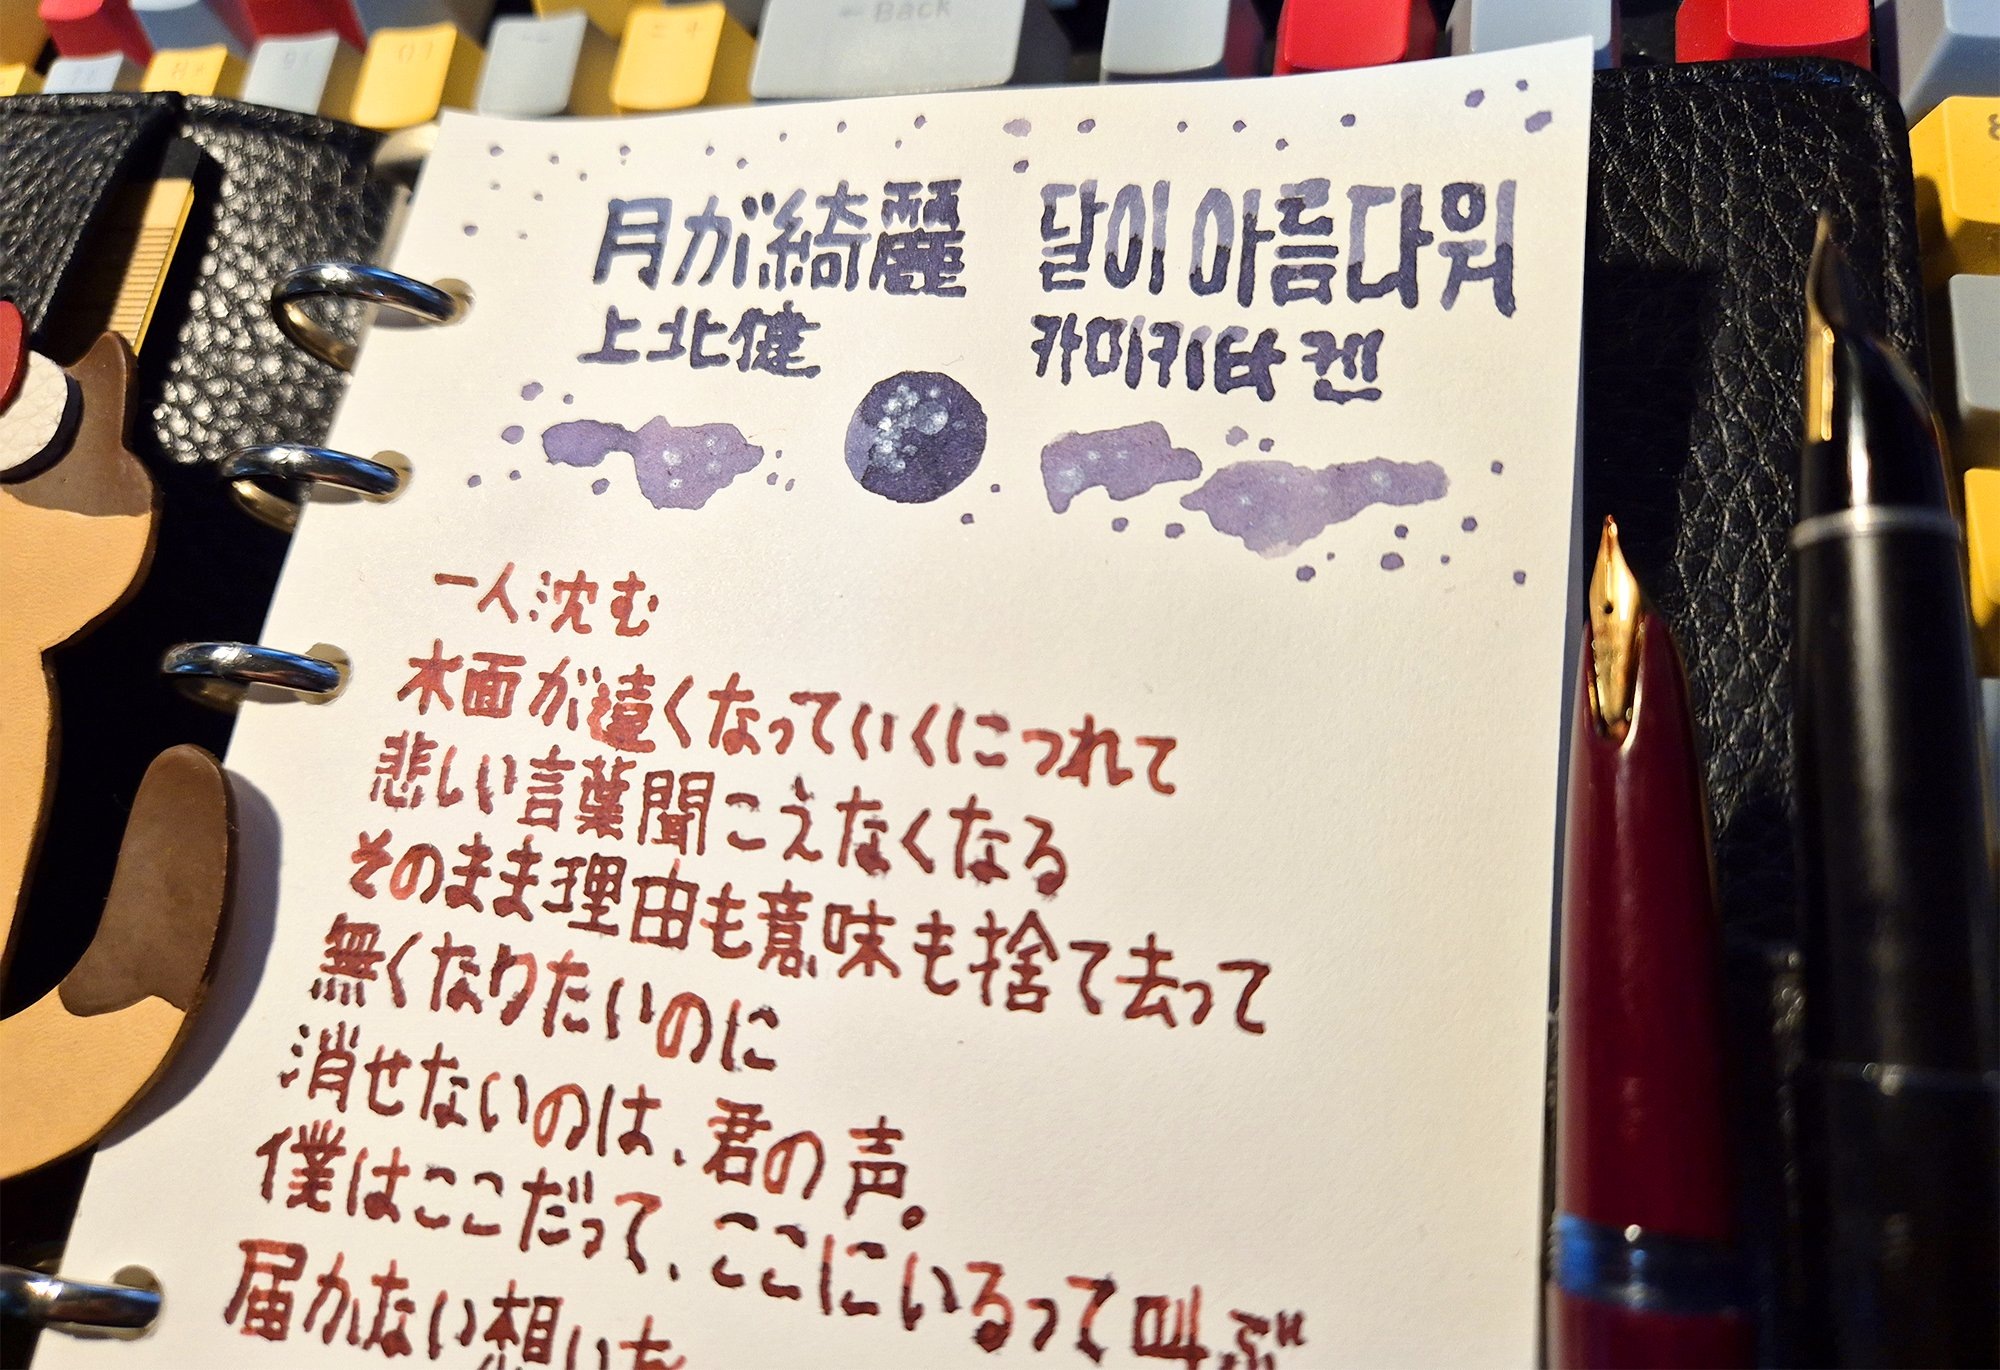 ← Back
月が綺麗 달이 아름다워
上北健 카미키타 켄
一人沈む
水面が遠くなっていくにつれて
悲しい言葉聞こえなくなる
そのまま理由も意味も捨て去って
無くなりたいのに
消せないのは、君の声。
僕はここだって、ここにいるって叫ぶ
届かない想いを